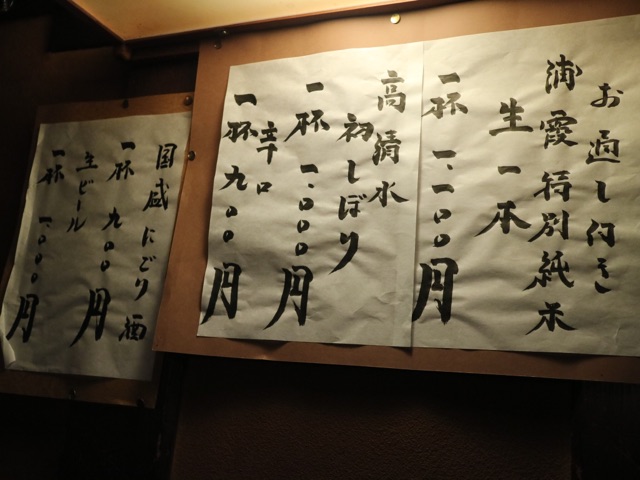 お通し付き
浦霞特別純米
生一本
一杯 一、一〇〇円
高清水
初しぼり
一杯 一、〇〇〇円
辛口
一杯 九〇〇円
国盛にごり酒
一杯 九〇〇円
生ビール
一杯 一、〇〇〇円